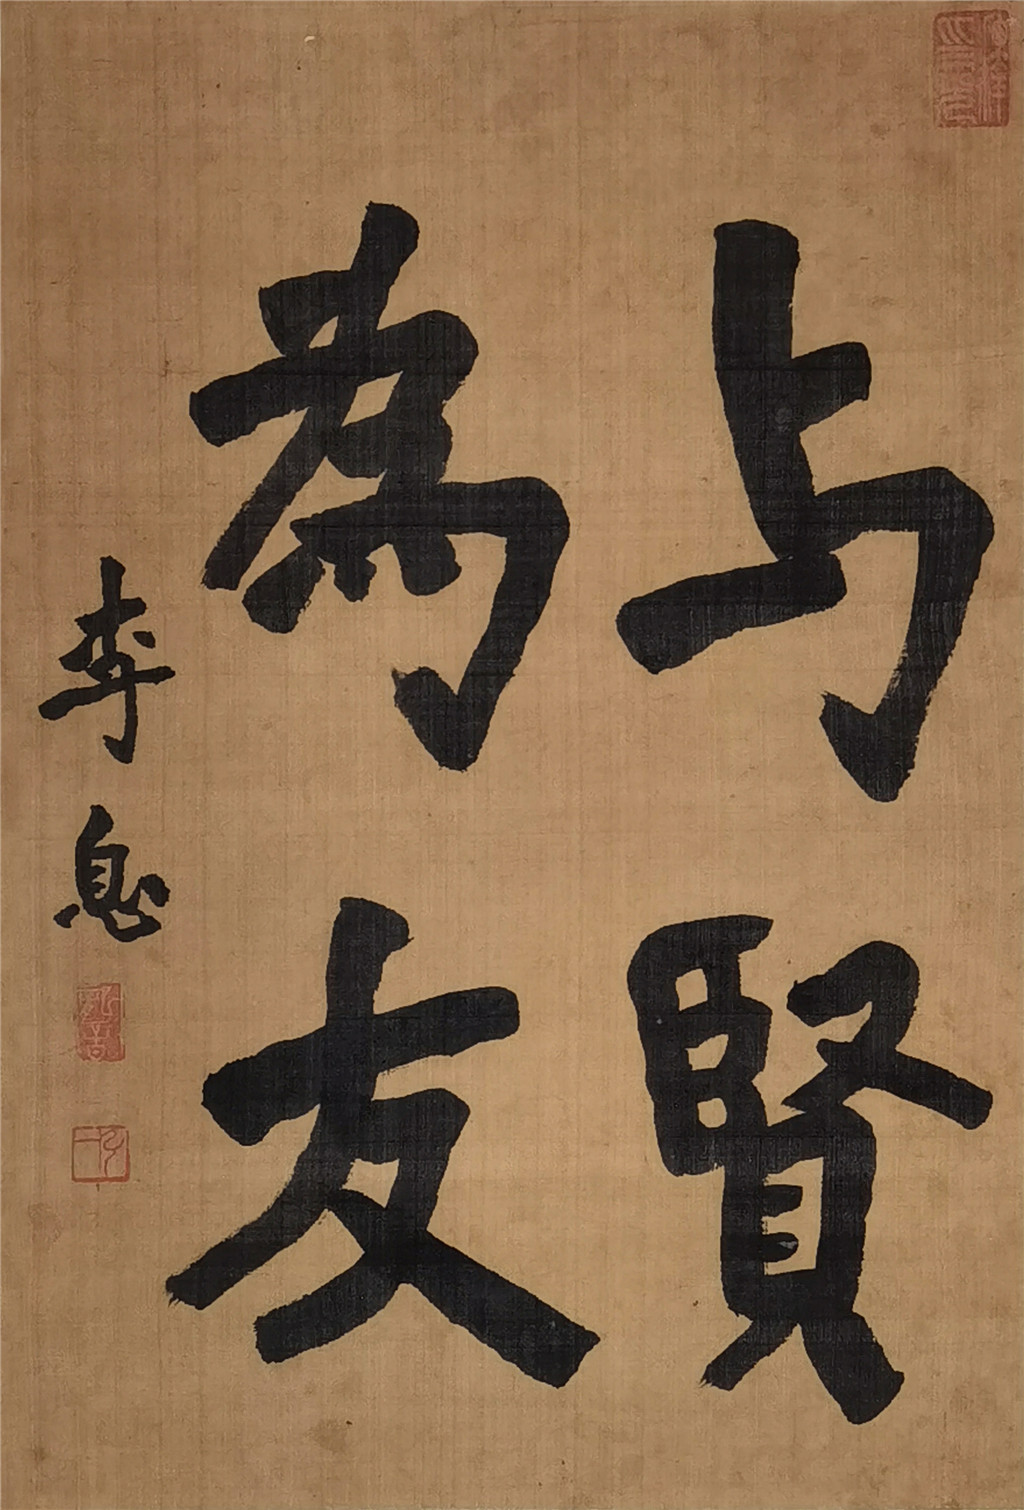 与賢
為友
李息